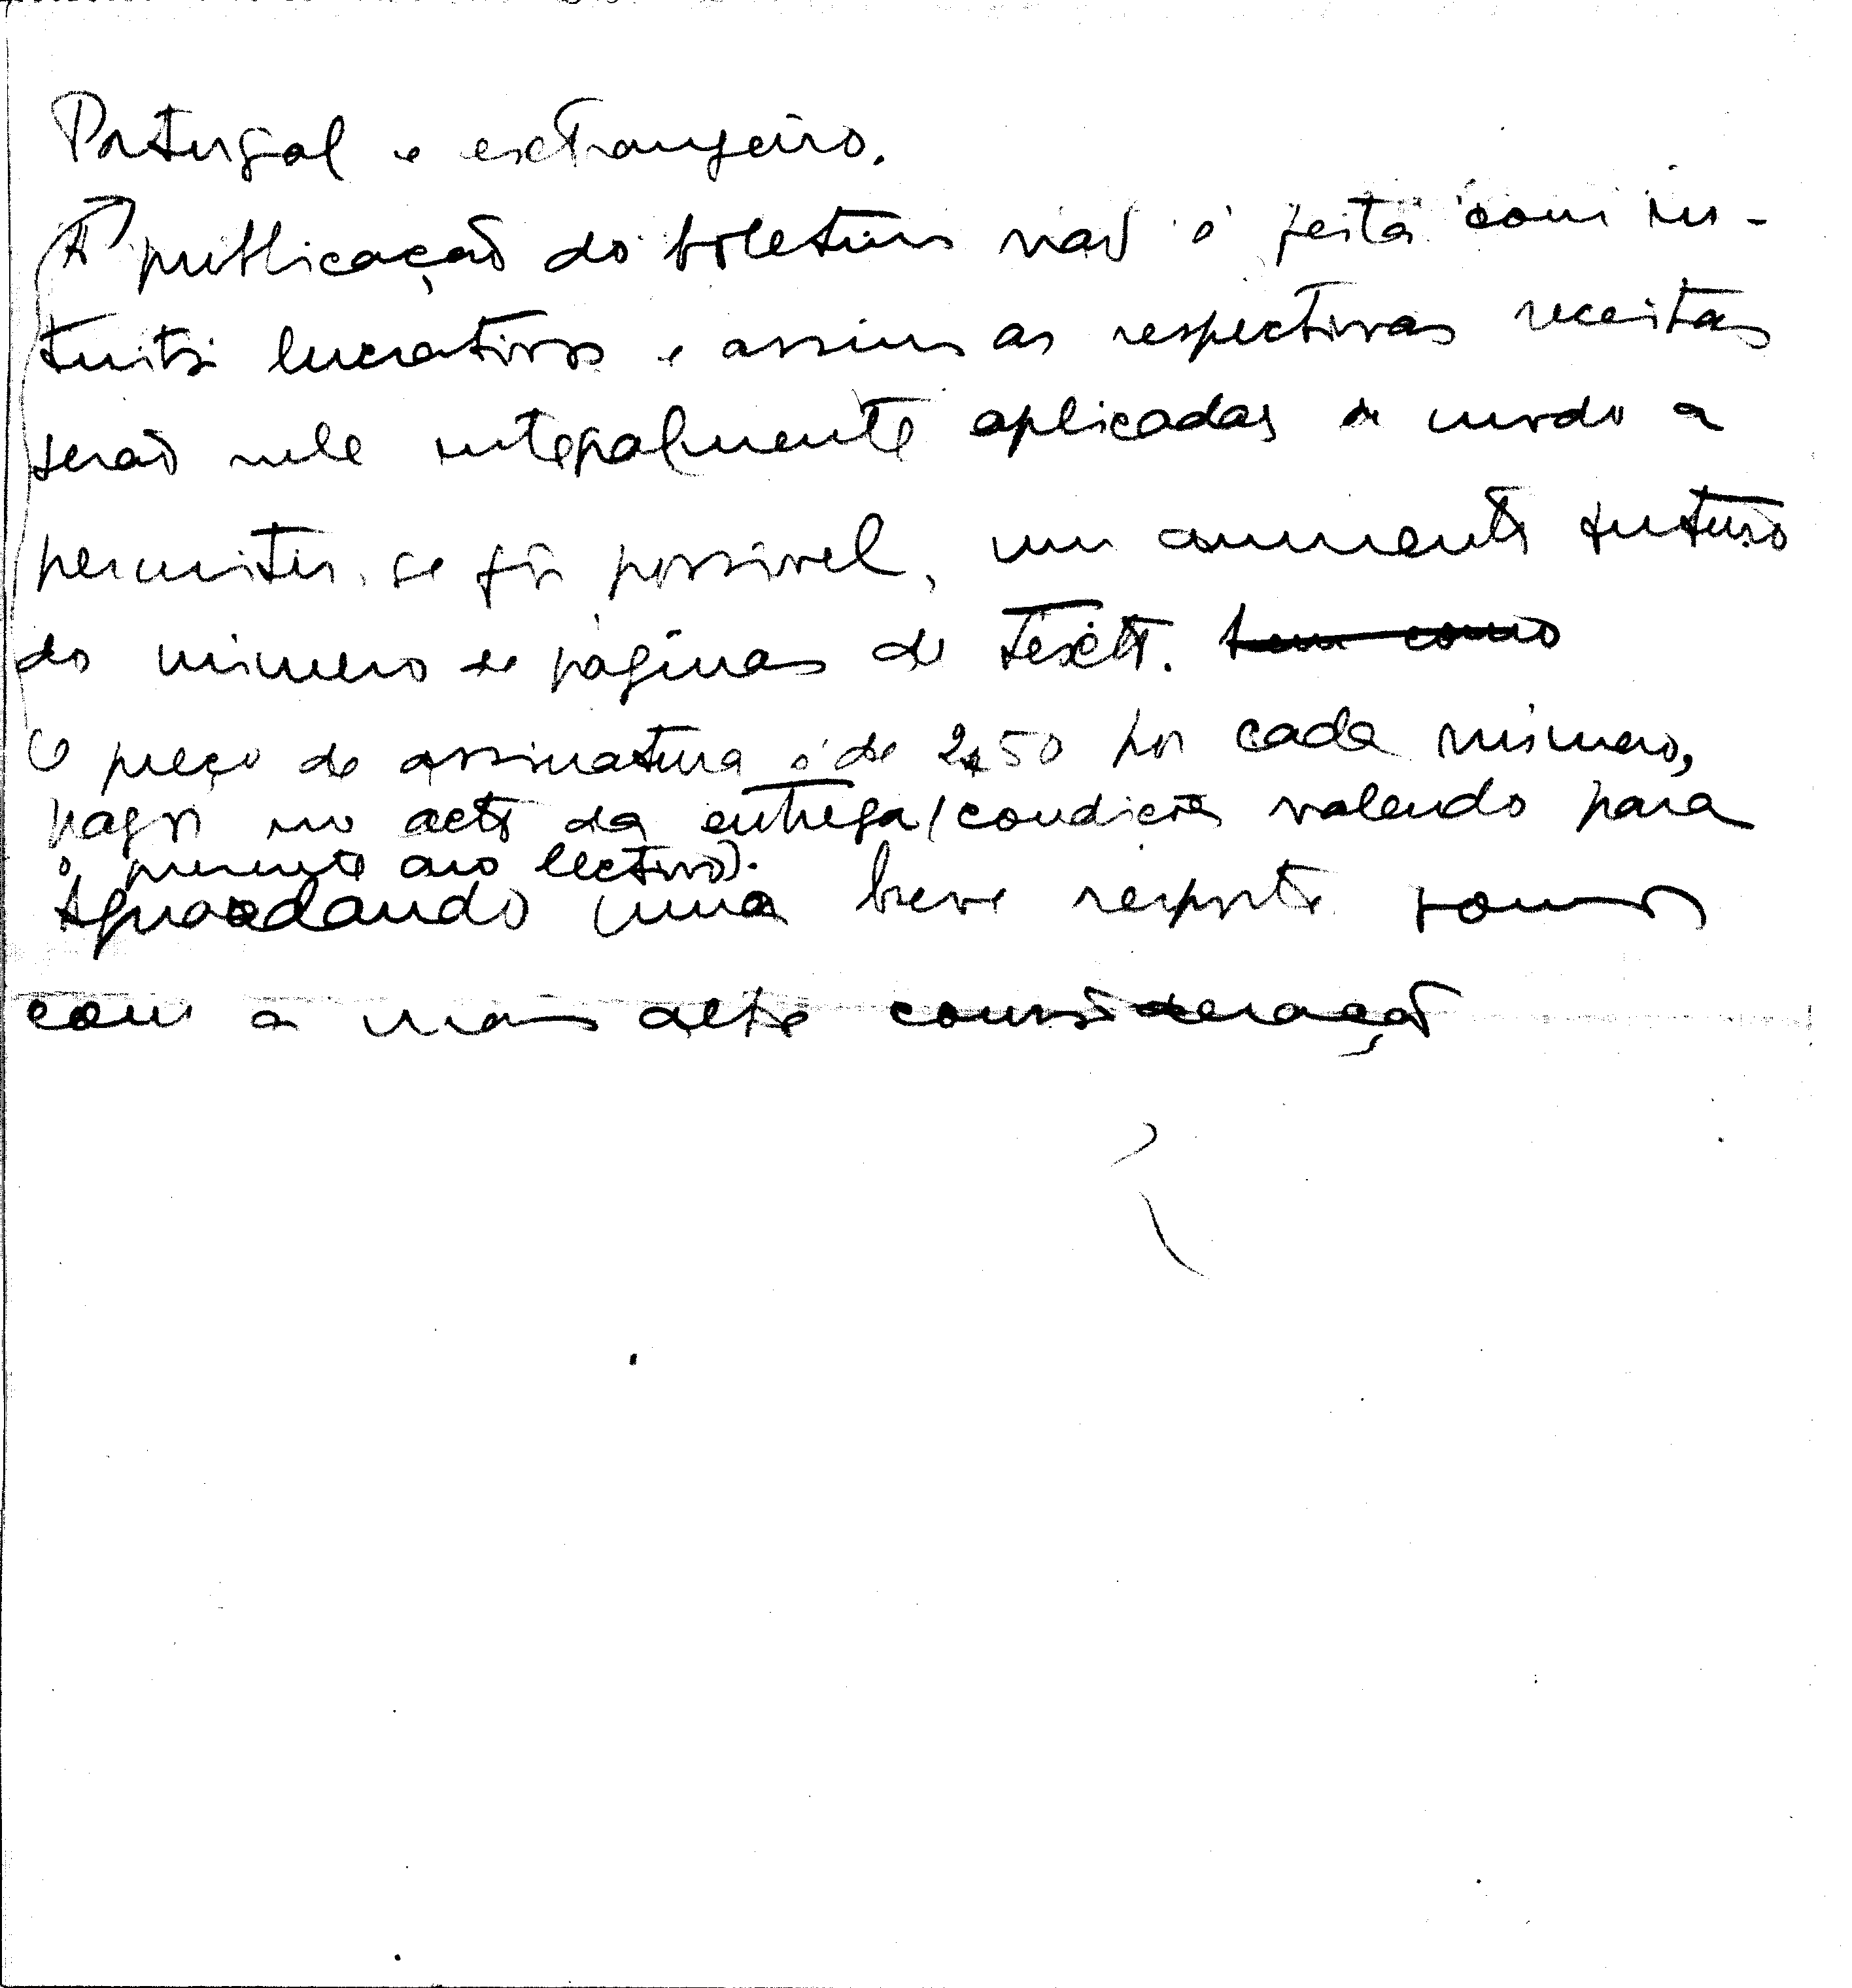 Portugal e estrangeiro.
A publicação do boletim não é feita com in-
tuitos lucrativos e assim as respectivas receitas
serão nele integralmente aplicadas de modo a
permitir, se fôr possível, um aumento futuro
do número de páginas de texto. bem como
O preço de assinatura é de 2$50 por cada número,
pagos no acto da entrega (condições valendo para
o presente ano lectivo).
Aguardando uma breve resposta somos
com a mais alta consideração